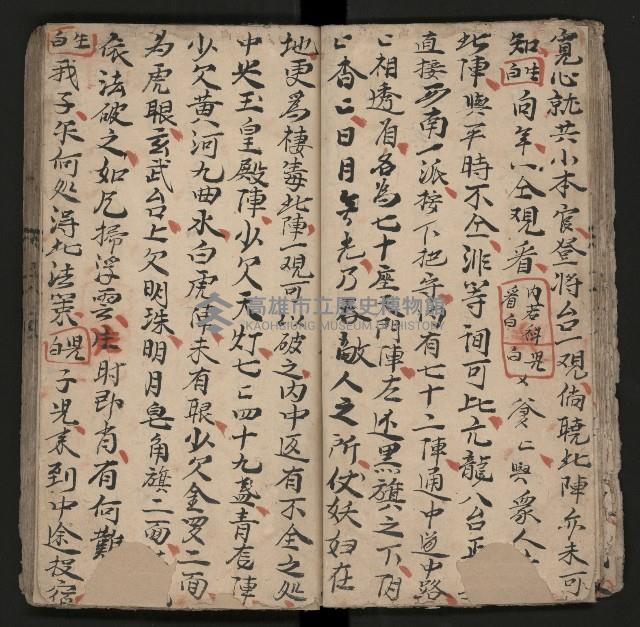 寬心就共小本官登將台一觀倘曉此陣亦未可
知生白向年不仝觀看內唱科看白兒白爹仝與眾人
此陣與平時不仝非等閒可比亢龍八台正
直接西南一派按下把守有七十二陣通中道中路
相透眉名為七十座天門陣左近黑旗之下陰
香日月無光乃敵人之所仗妖婦在
地更為棲毒此陣一觀可以破之內中返有不全之處
中央玉皇殿陣少欠天灯七七四十九盞青龍陣
少欠黃河九曲水白虎陣未有眼少欠金鑼二面
為虎眼玄武台上欠明珠明月皂角旗二面
依法破之如凡掃浮雲生時即肯有何難
生白我子你何処得此法寨兒白子兒來到中途投宿
高雄市立歷史博物館
KAOHSIUNG MUSEUM OF HISTORY